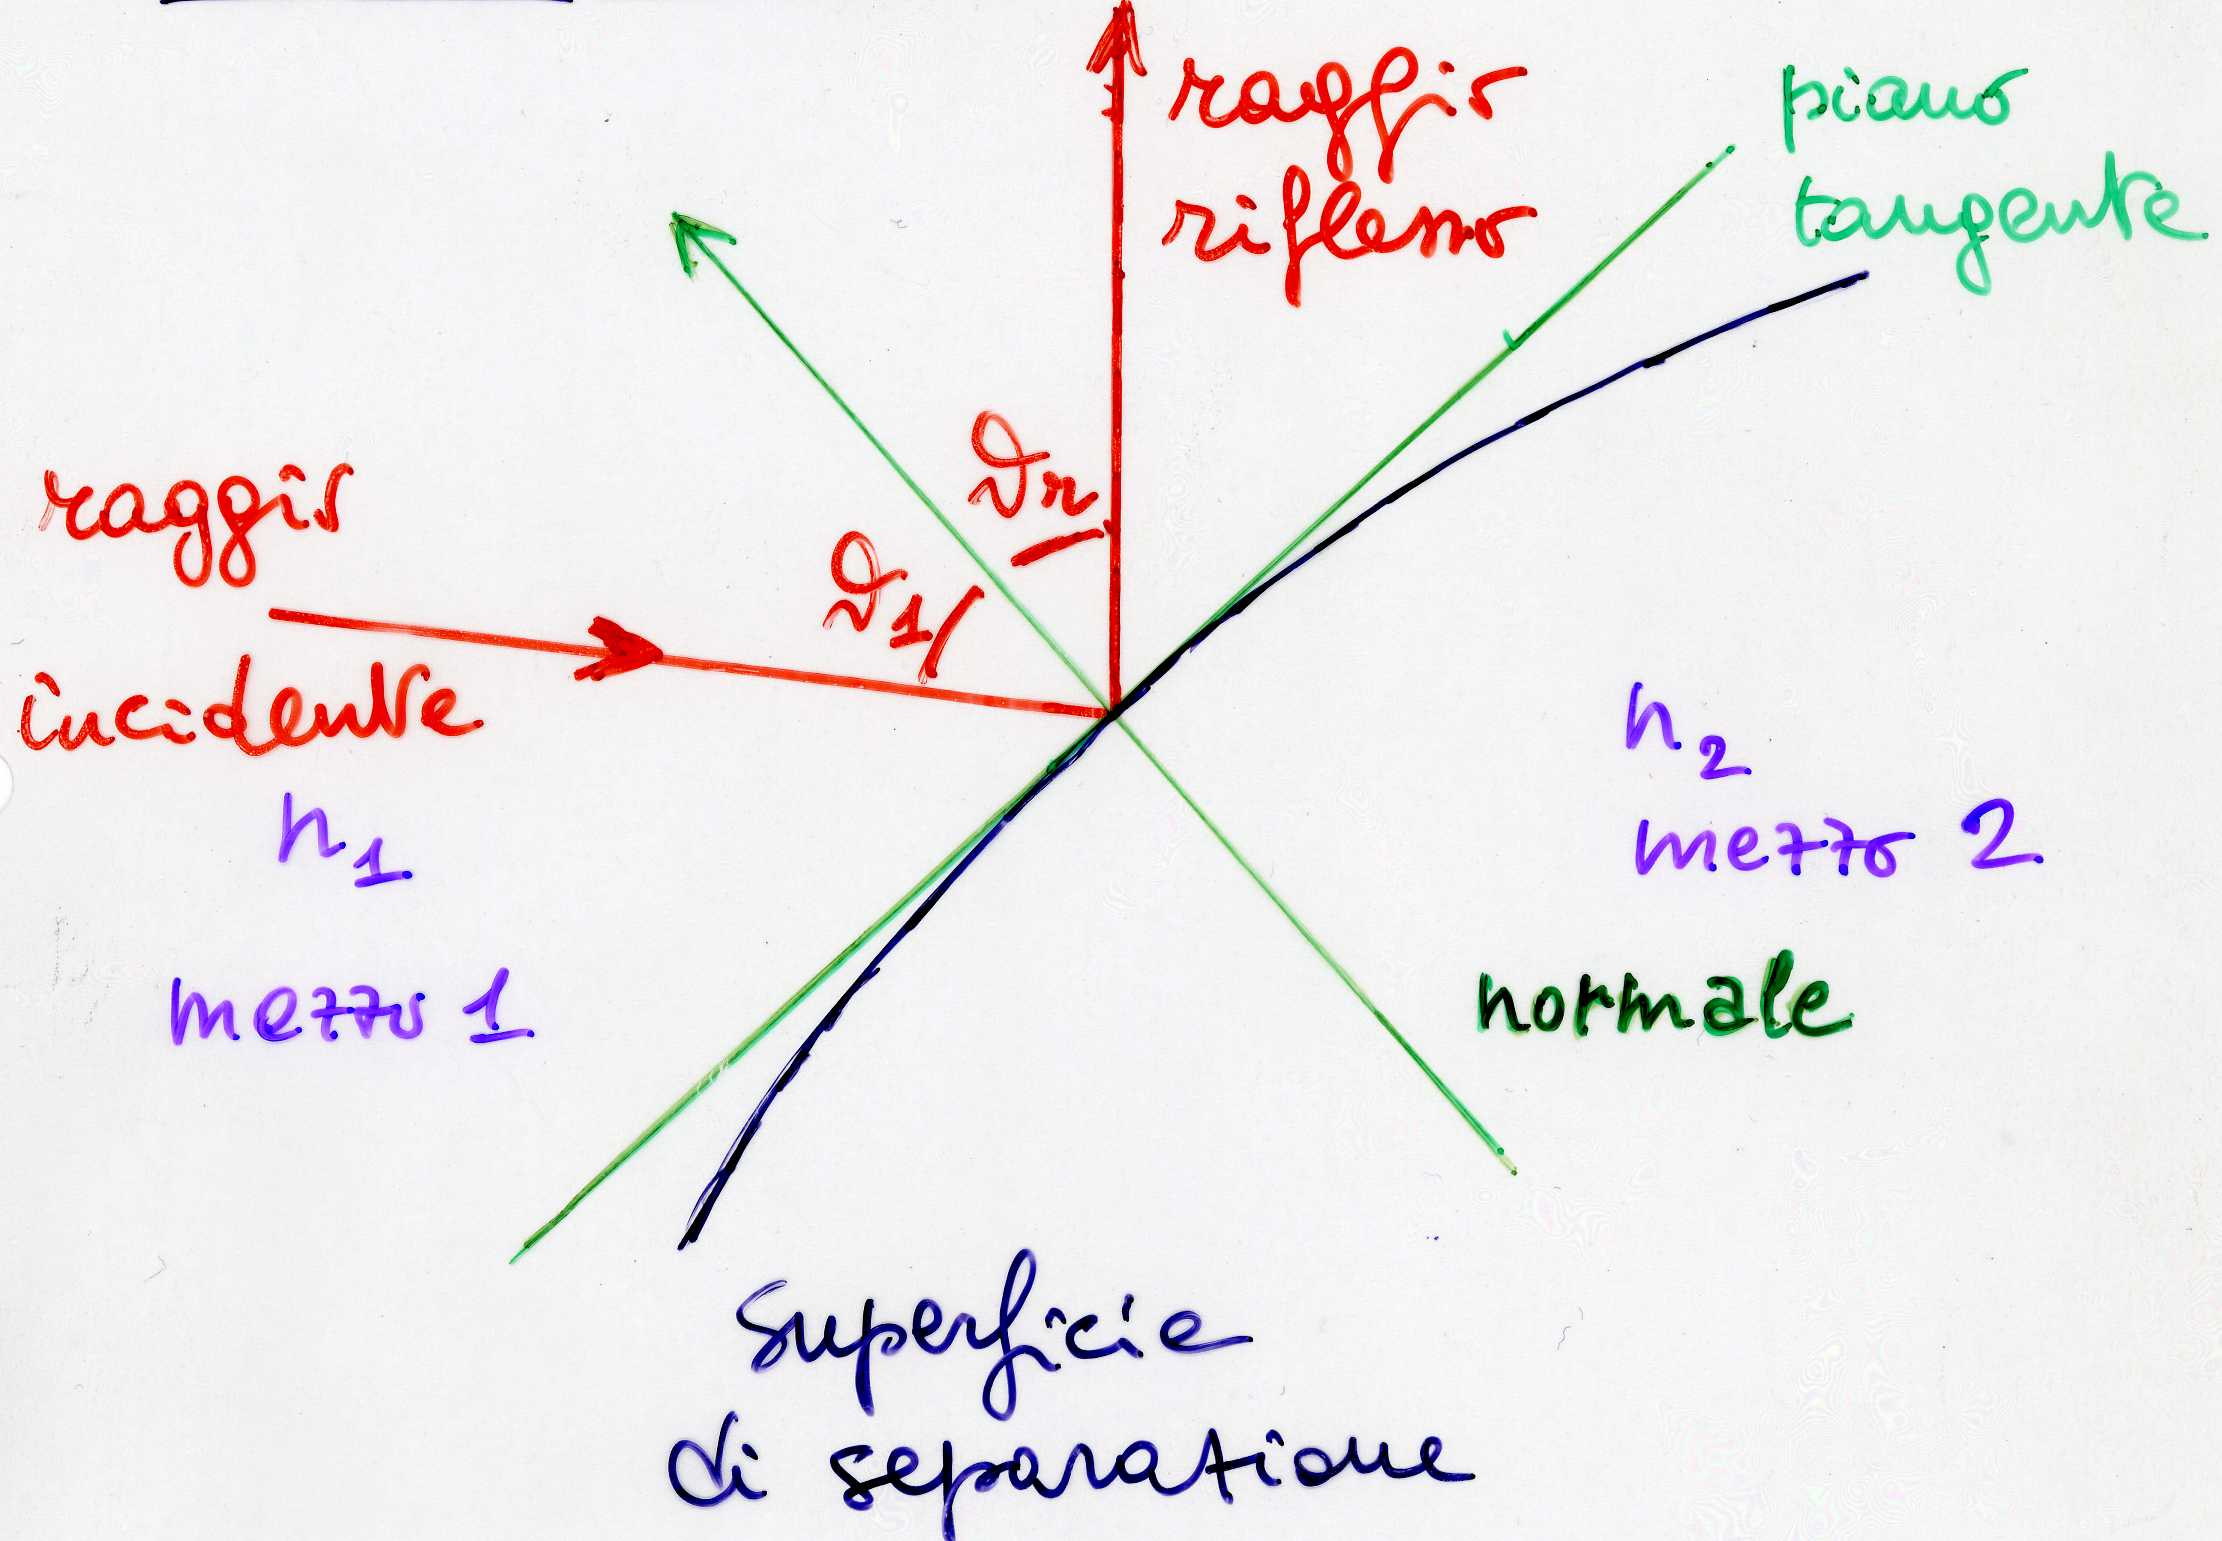 raggio
riflesso
piano
tangente
ϑr
ϑ1
raggio
incidente
n1
mezzo 1
n2
mezzo 2
normale
superficie
di separazione